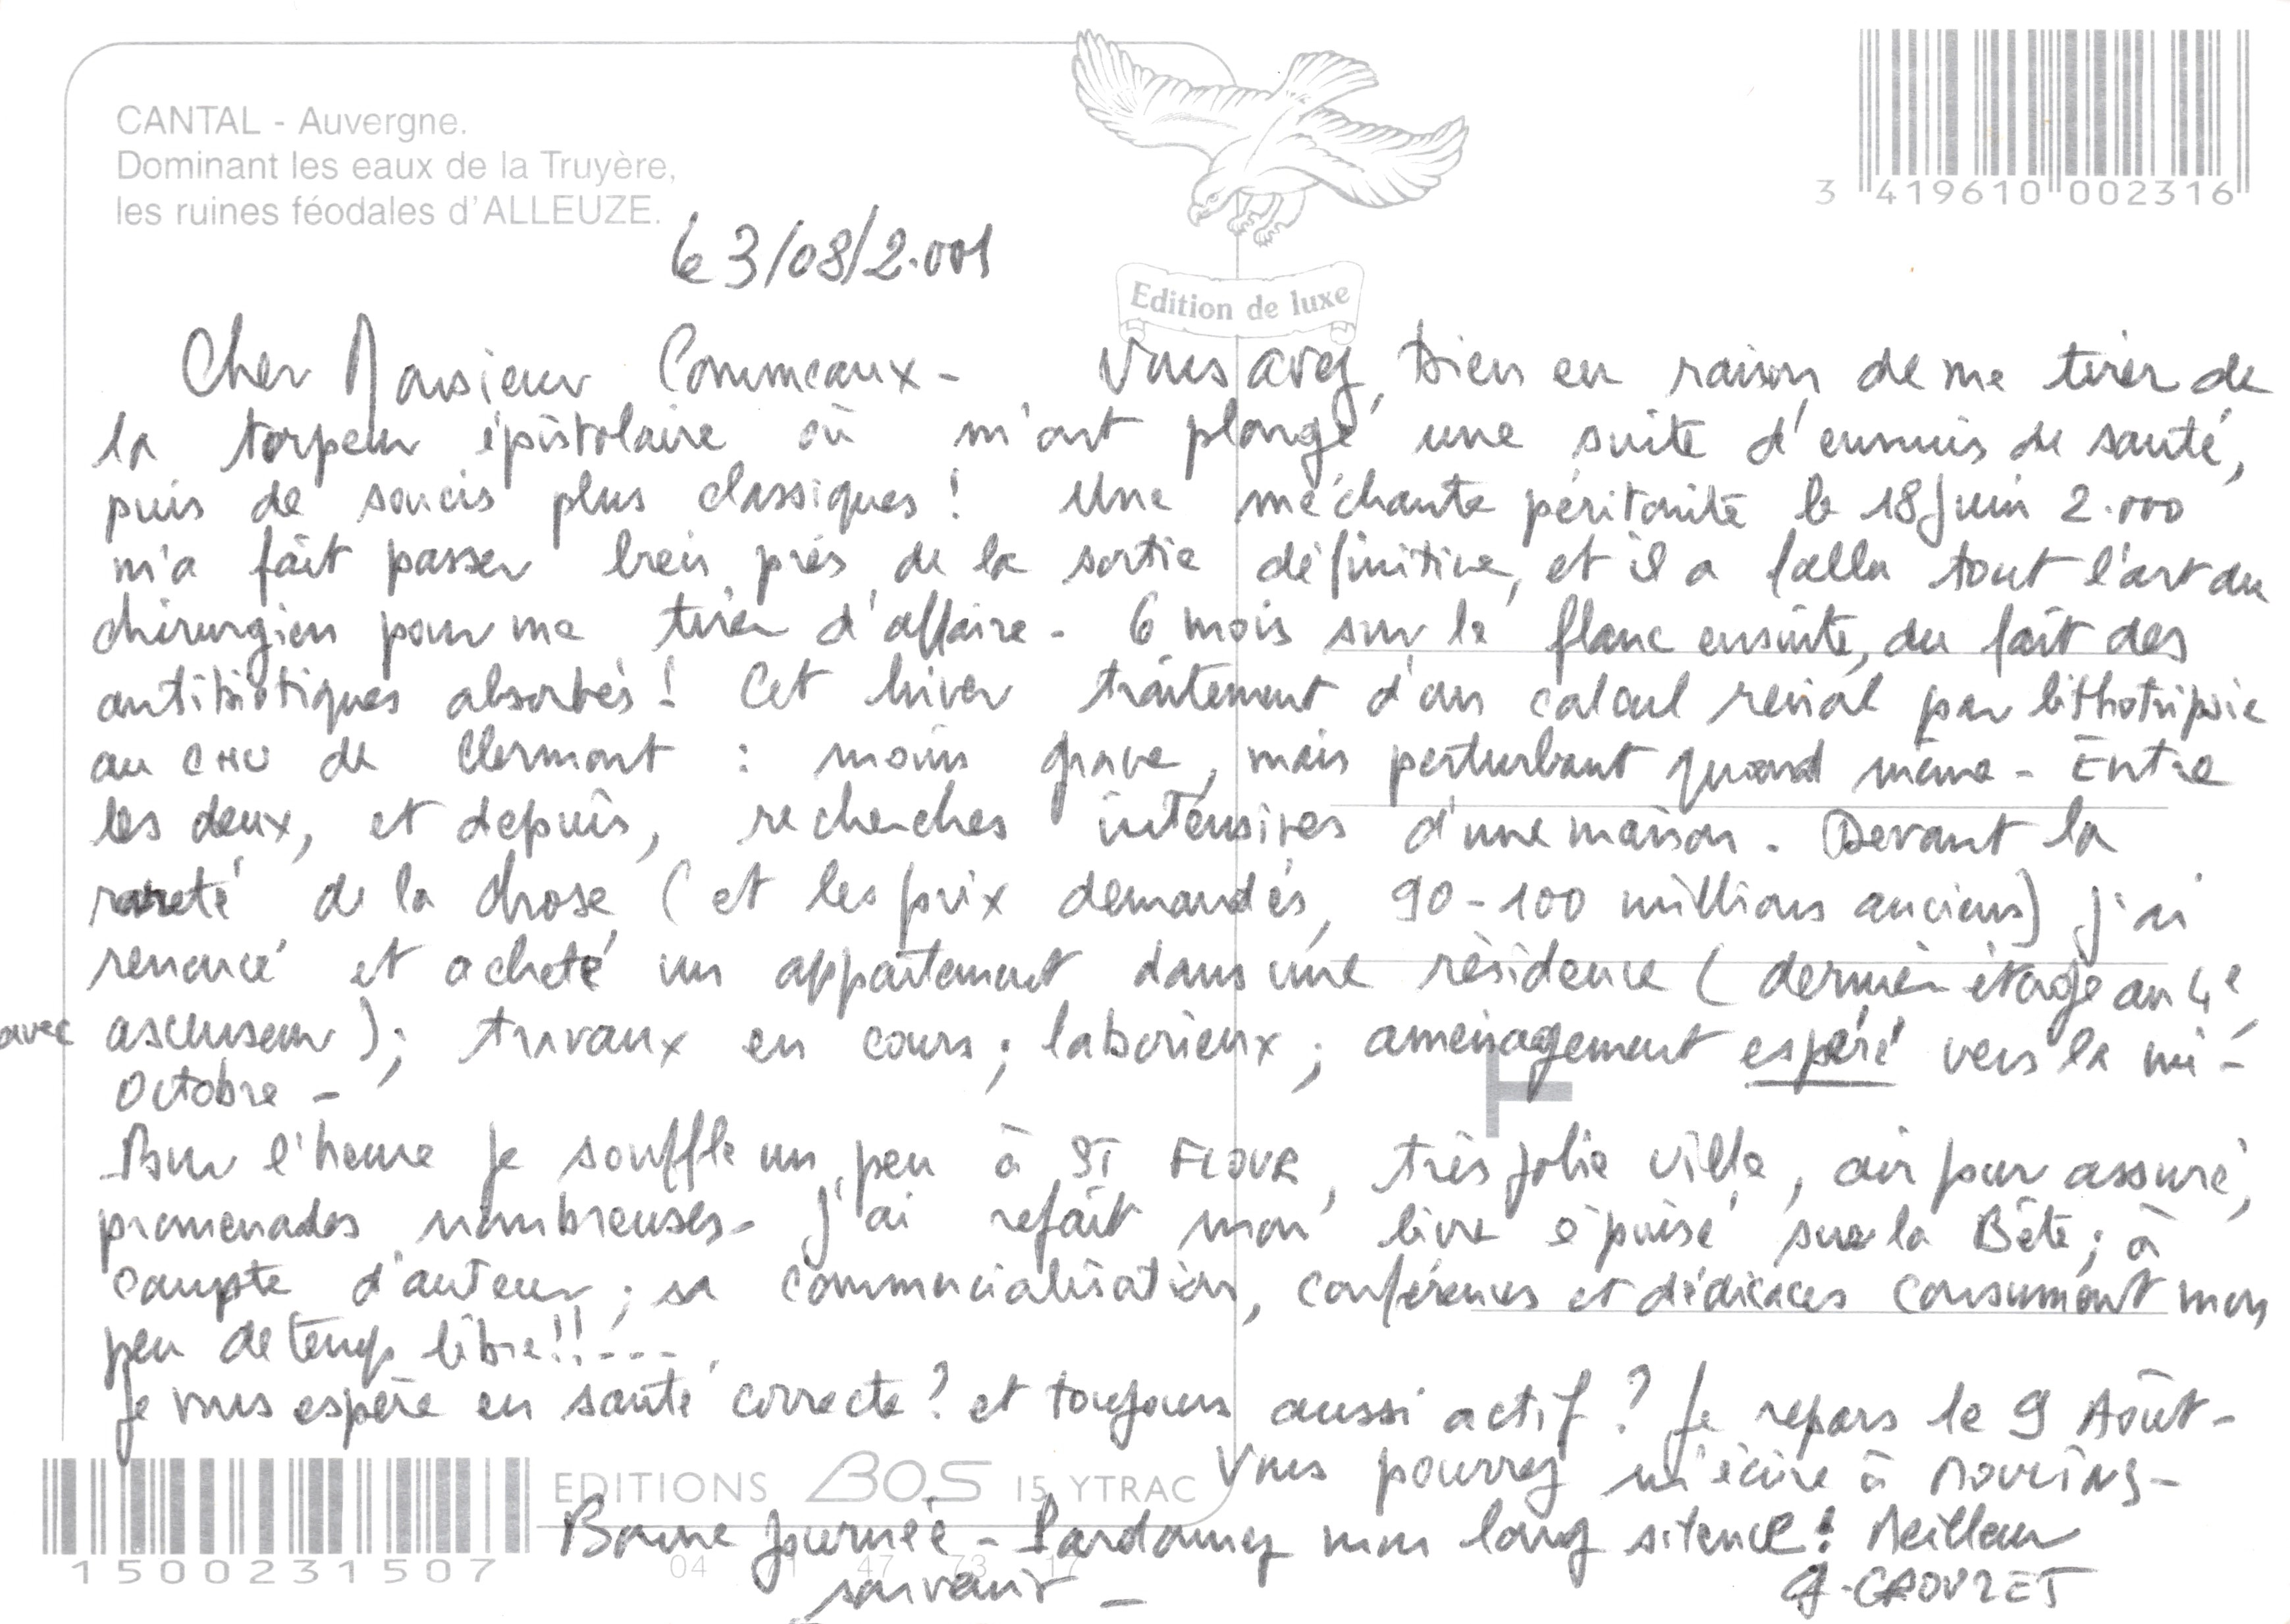 CANTAL - Auvergne.
Dominant les eaux de la Truyère,
les ruines féodales d'ALLEUZE.
3 419610 002316
Le 3/08/2.001
Edition de luxe
Cher Monsieur Commeaux - Vous avez bien eu raison de me tirer de
la torpeur épistolaire où m'ont plongé une suite d'ennuis de santé,
puis de soucis plus classiques ! Une méchante péritonite le 18 Juin 2.000
m'a fait passer bien près de la sortie définitive, et il a fallu tout l'art du
chirurgien pour me tirer d'affaire - 6 mois sur le flanc ensuite, du fait des
antibiotiques absorbés ! Cet hiver traitement d'un calcul rénal par lithotripsie
au CHU de Clermont : moins grave, mais perturbant quand même - Entre
les deux, et depuis, recherches intensives d'une maison. Devant la
rareté de la chose (et les prix demandés, 90-100 millions anciens) j'ai
renoncé et acheté un appartement dans une résidence (dernier étage au 4e,
avec ascenseur) ; travaux en cours ; laborieux ; aménagement espéré vers la mi-
Octobre -
Pour l'heure je souffle un peu à ST FLOUR, très jolie ville, air pur assuré,
promenades nombreuses - j'ai refait mon livre épuisé sur la Bête ; à
compte d'auteur ; sa commercialisation, conférences et dédicaces consument mon
peu de temps libre !! - - - .
Je vous espère en santé correcte ? et toujours aussi actif ? Je repars le 9 Août -
Vous pourrez m'écire à MOULINS -
EDITIONS BOS 15 YTRAC
Bonne journée - Pardonnez mon long silence ! Meilleur
04 47 73 17
1500231507
souvenir -
G. CROUZET